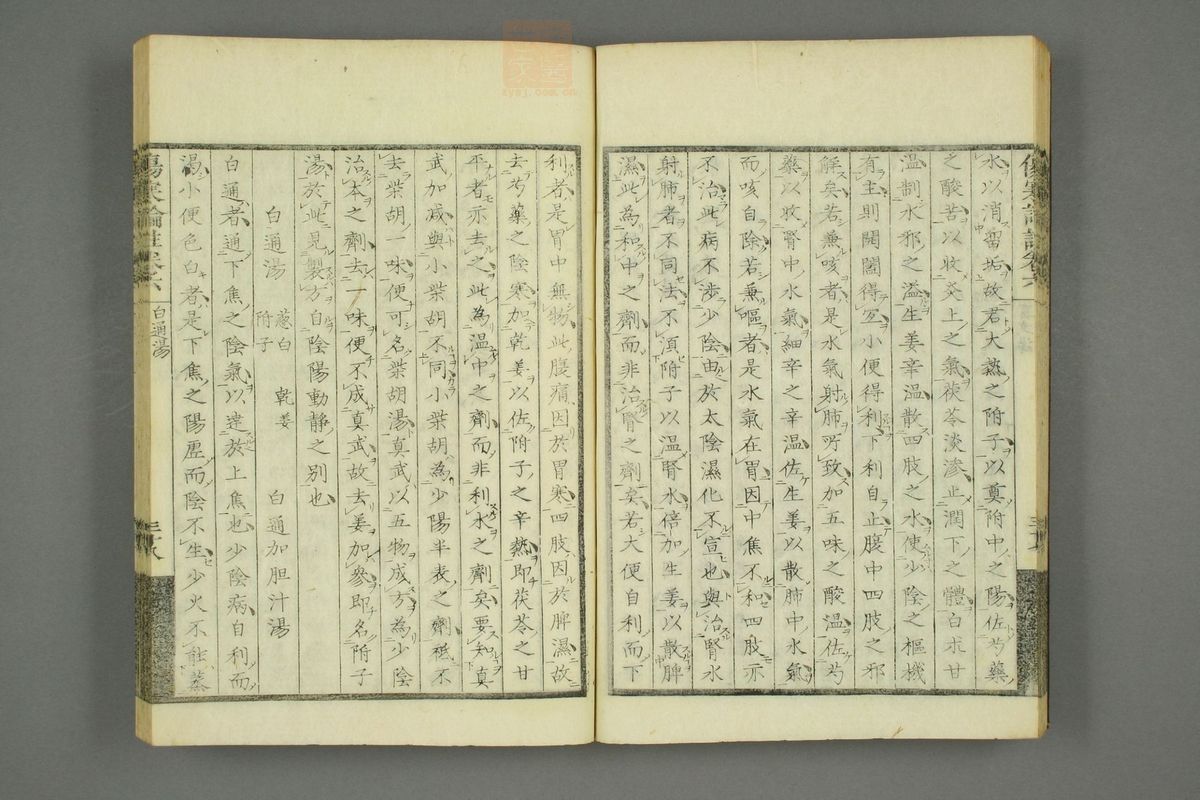 水以消留垢故君大熱之附子以奠附中之陽佐芍藥
之酸苦以收炎上之氣茯苓淡滲止潤下之體白朮甘
温制水邪之溢生姜辛温散四肢之水使少陰之樞機
有主則開闔得宜小便得利下利自止腹中四肢之邪
解矣若兼咳者是水氣射肺所致加五味之酸温佐芍
藥以收腎中水氣細辛之辛温佐生姜以散肺中水氣
而咳自除若兼嘔者是水氣在胃因中焦不和四肢亦
不治此病不涉少陰由於太陰濕化不宣也與治腎水
射肺者不同法不須附子以温腎水倍加生姜以散脾
濕此為和中之劑而非治腎之劑矣若大便自利而下
利者是胃中無物此腹痛因於胃寒四肢因於脾濕故
去芍藥之陰寒加乾姜以佐附子之辛熱即茯苓之甘
平者亦去之此為温中之劑而非利水之劑矣要知真
武加减與小柴胡不同小柴胡為少陽半表之劑秪不
去柴胡一味便可名柴胡湯真武以五物成方為少陰
治本之劑去一味便不成真武故去姜加參即名附子
湯於此見製方自陰陽動静之別也
白通湯 葱白 附子 乾姜 白通加胆汁湯
白通者通下焦之陰氣以達於上焦也少陰病自利而
渴小便色白者是下焦之陽虚而陰不生少火不能蒸
傷寒論註卷六
白通湯
三十八
zysj.com.cn